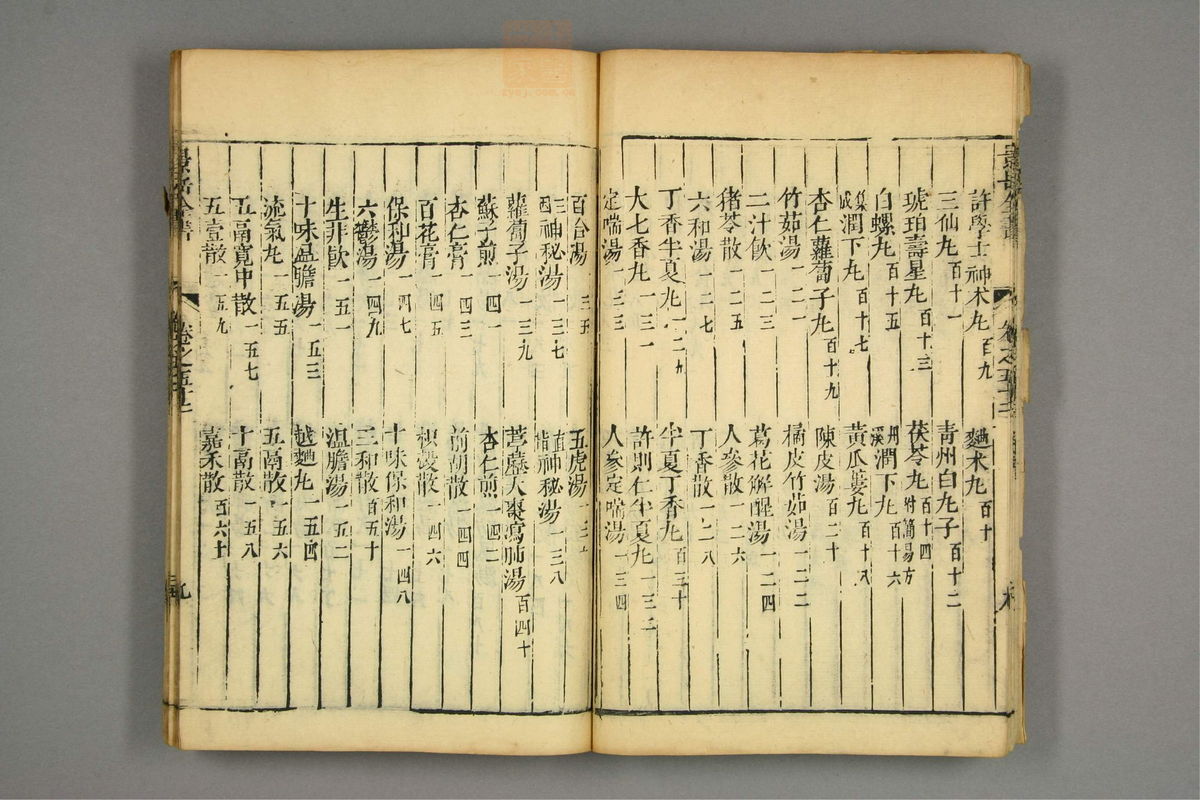 許學士神术丸 百九 麯术丸 百十
三仙丸 百十一 青州白丸子 百十二
琥珀壽星丸 百十三 茯苓丸 百十四 附簡易方
白螺丸 百十五 潤下丸 百十六
潤下丸 百十七 黄瓜蔞丸 百十八
杏仁蘿蔔子丸 百十九 陳皮湯 百二十
竹茹湯 一二一 橘皮竹茹湯 一二二
二汁飲 一二三 葛花解酲湯 一二四
猪苓散 一二五 人參散 一二六
六和湯 一二七 丁香散 一二八
丁香半夏丸 一二九 半夏丁香丸 百三十
大七香丸 一三一 許則仁半夏丸 一三二
定喘湯 一三三 人參定喘湯 一三四
百合湯 三五 五虎湯
三神秘湯 一三七 直指神秘湯 一三八
蘿蔔子湯 一三九 葶藶大棗瀉肺湯 百四十
蘇子煎 一四一 杏仁煎 一四二
杏仁膏 一四三 前胡散 一四四
百花膏 一四五 枳殼散 一四六
保和湯 一四七 十味保和湯 一四八
六鬱湯 一四九 三和散 百五十
生韭飲 一五一 温膽湯 一五二
十味温膽湯 一五三 越麯丸 一五四
流氣丸 一五五 五膈散 一五六
五膈寬中散 一五七 十膈散 一五八
五壹散 一五九 嘉禾散 百六十
景岳全書 卷之五十